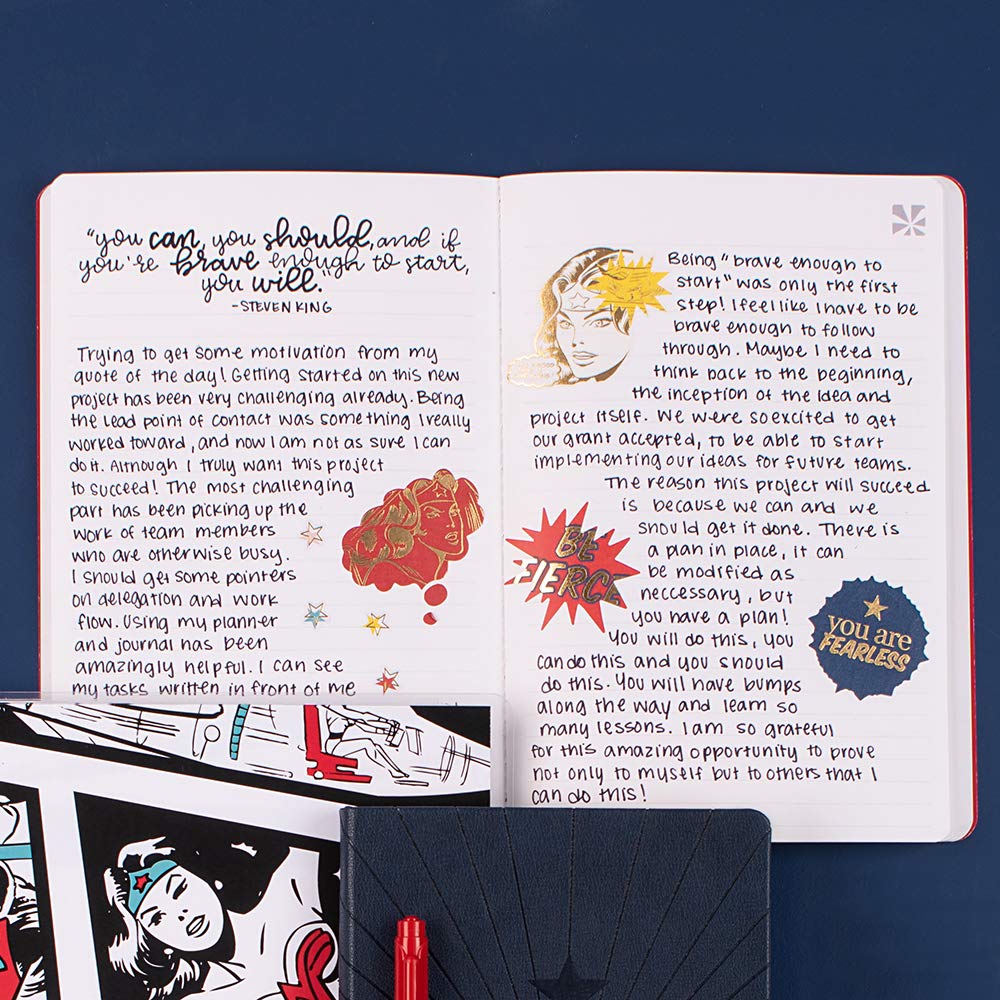 "you can, you should, and if
you're brave enough to start,
you will."
-STEVEN KING
Trying to get some motivation from my
quote of the day! Getting started on this new
project has been very challenging already. Being
the lead point of contact was something I really
worked toward, and now I am not as sure I can
do it. Although I truly want this project
to succeed! The most challenging
part has been picking up the
work of team members
who are otherwise busy.
I should get some pointers
on delegation and work
flow. Using my planner
and journal has been
amazingly helpful. I can see
my tasks written in front of me
Being "brave enough to
start" was only the first
step! I feel like I have to be
brave enough to follow
through. Maybe I need to
think back to the beginning,
the inception of the idea and
project itself. We were so excited to get
our grant accepted, to be able to start
implementing our ideas for future teams.
The reason this project will succeed
is because we can and we
should get it done. There is
a plan in place, it can
be modified as
neccessary, but
you have a plan!
You will do this, you
can do this and you should
do this. You will have bumps
along the way and learn so
many lessons. I am so grateful
for this amazing opportunity to prove
not only to myself but to others that I
can do this!
BE
FIERCE
you are
FEARLESS